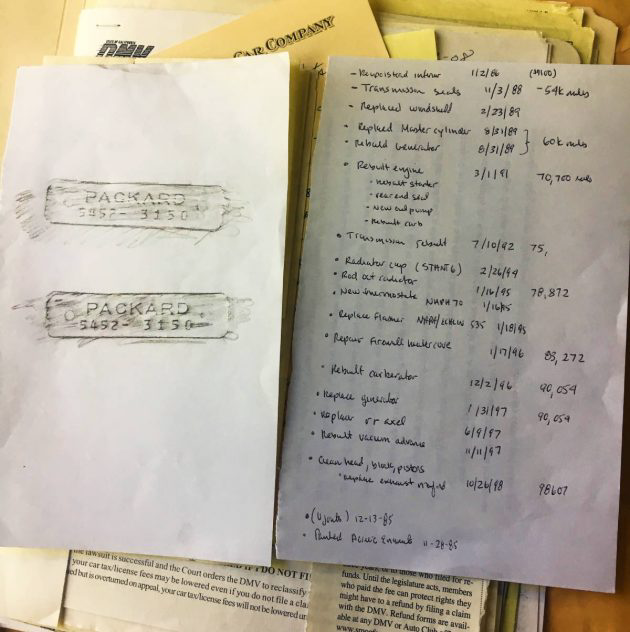 DMV
CAR COMPANY
PACKARD
5452-3150
PACKARD
5452-3150
- interior 1/2/86 ($4100)
- Transmission seals 11/3/88 - 54k miles
- Replaced windshield 2/23/89
- Replaced Master cylinder 8/31/89
- Rebuild Generator 8/31/89 60k miles
• Rebuilt engine 3/11/91 70,700 miles
• rebuilt starter
• rear end seal
• New oil pump
• Rebuilt carb
• Transmission rebuilt 7/10/92 75,
• Radiator cap (STANT 6) 2/26/94
• Rod out radiator 1/16/95 78,872
• New thermostate NAPA 70 1/16/95
• Replace flasher 535 1/18/95
• Repair firewall 1/17/96 83,272
• Rebuilt carberator 12/2/96 90,054
• Replace generator 1/31/97 90,054
• Replace rr axel 6/9/97
• Rebuilt vacuum advance 11/11/97
• Clean head, block, pistons
• replace exhaust 10/26/98 98607
• (Ujoints) 12-13-85
• Painted Acrilic Enamel 11-28-85
the lawsuit is successful and the Court orders the DMV to reclassify
your car tax/license fees may be lowered even if you do not file a
but is overturned on appeal, your car tax/license fees will not be lowered
IF I DO NOT
or to those who filed for re-
funds. Until the legislature acts, members
who paid the fee can protect rights they
might have to a refund by filing a claim
with the DMV. Refund forms are avail-
able at any DMV or Auto Club